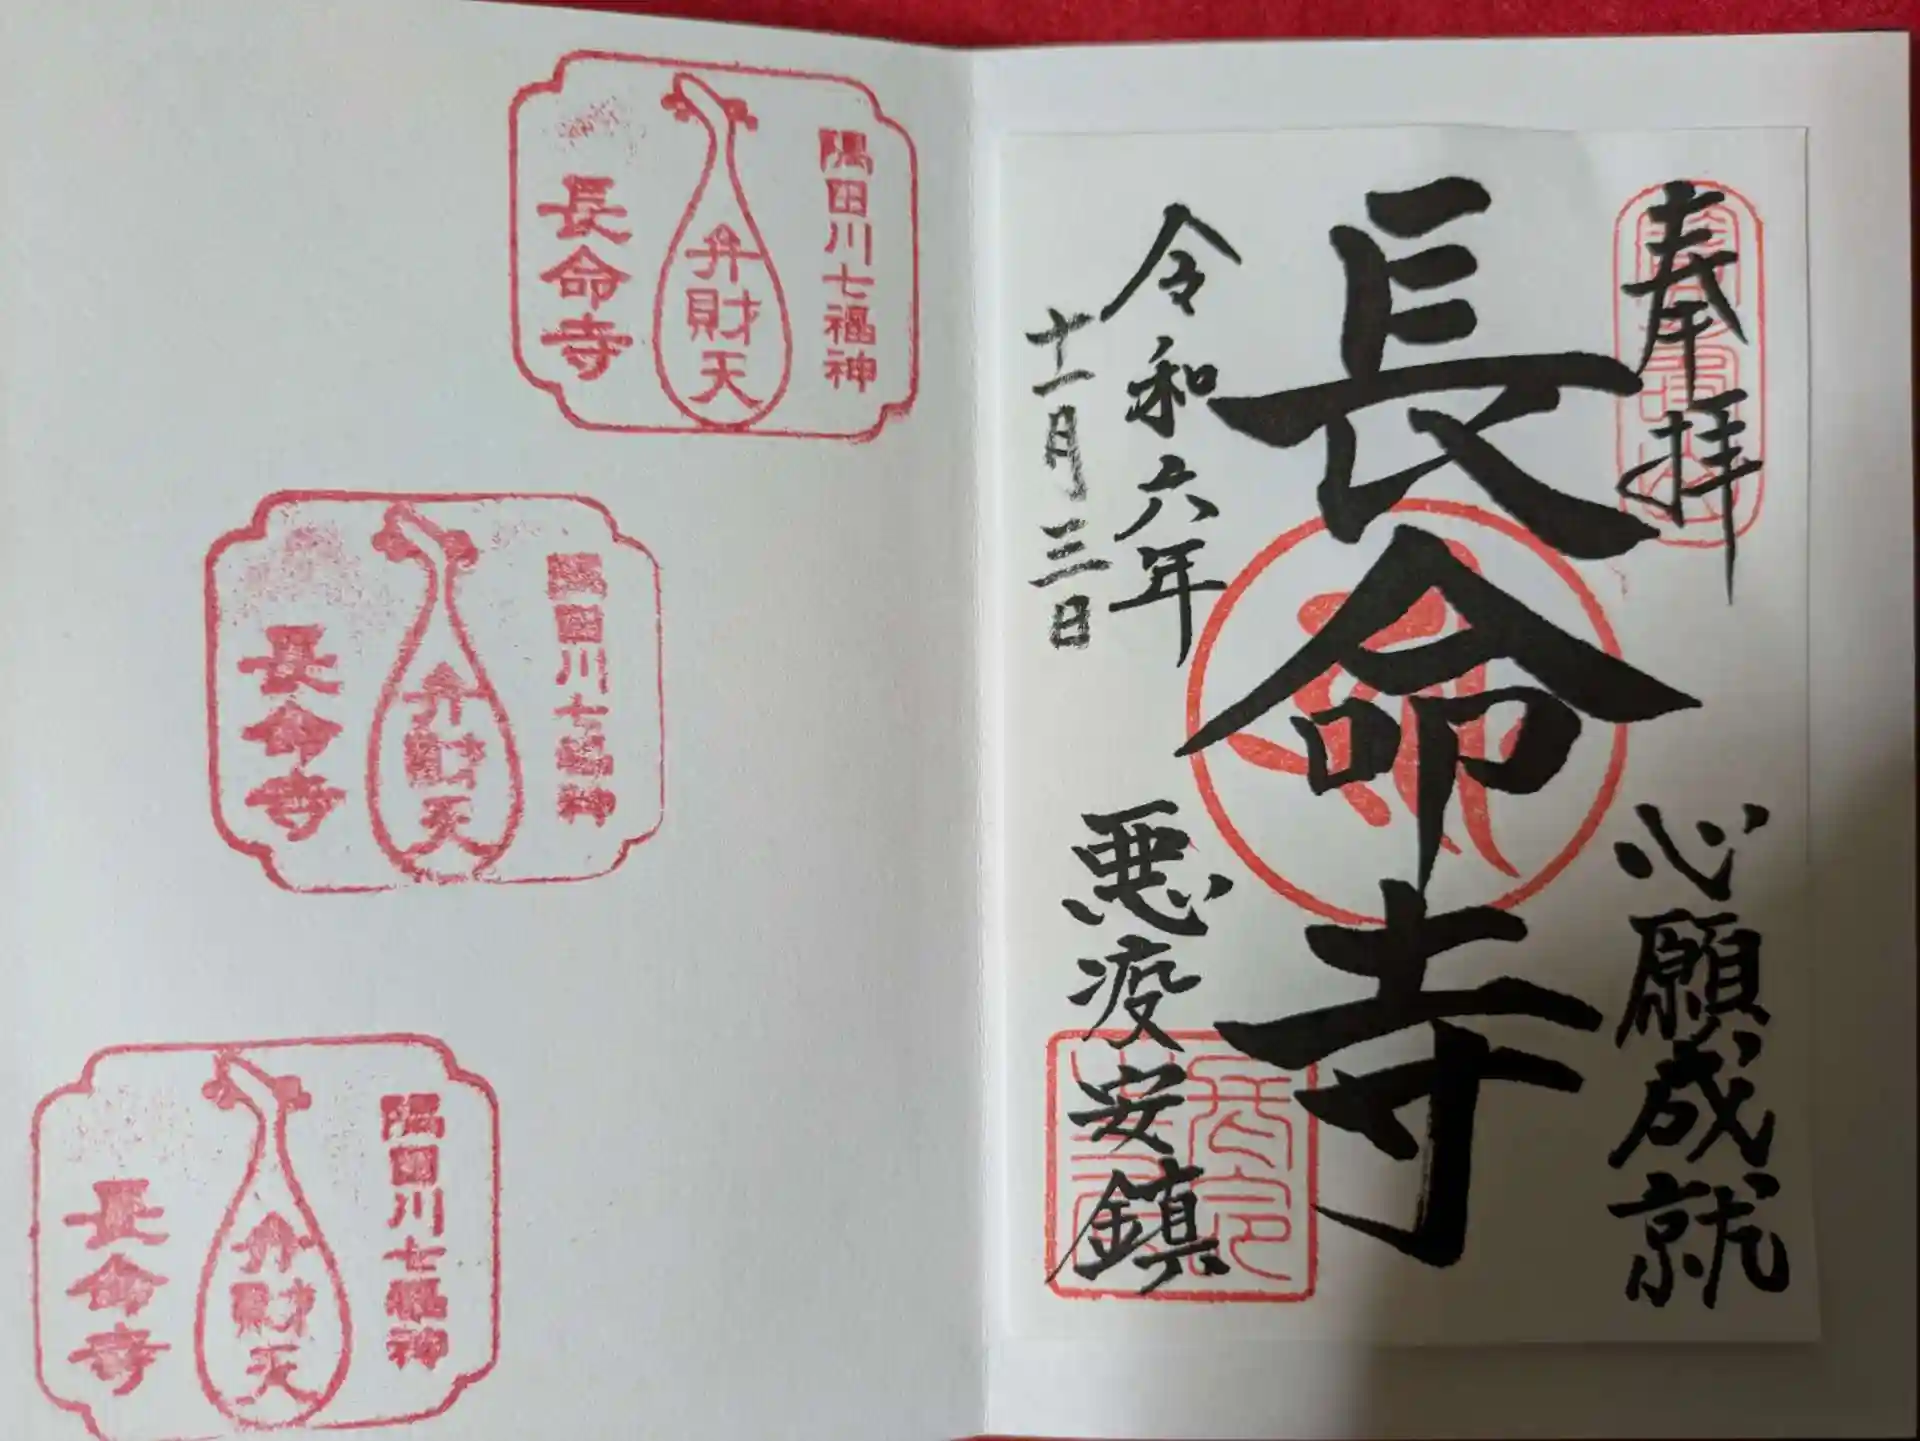 奉拝
心願成就
長命寺
令和六年
十一月三日
悪疫安鎮
隅田川七福神
弁財天
長命寺
隅田川七福神
弁財天
長命寺
隅田川七福神
弁財天
長命寺